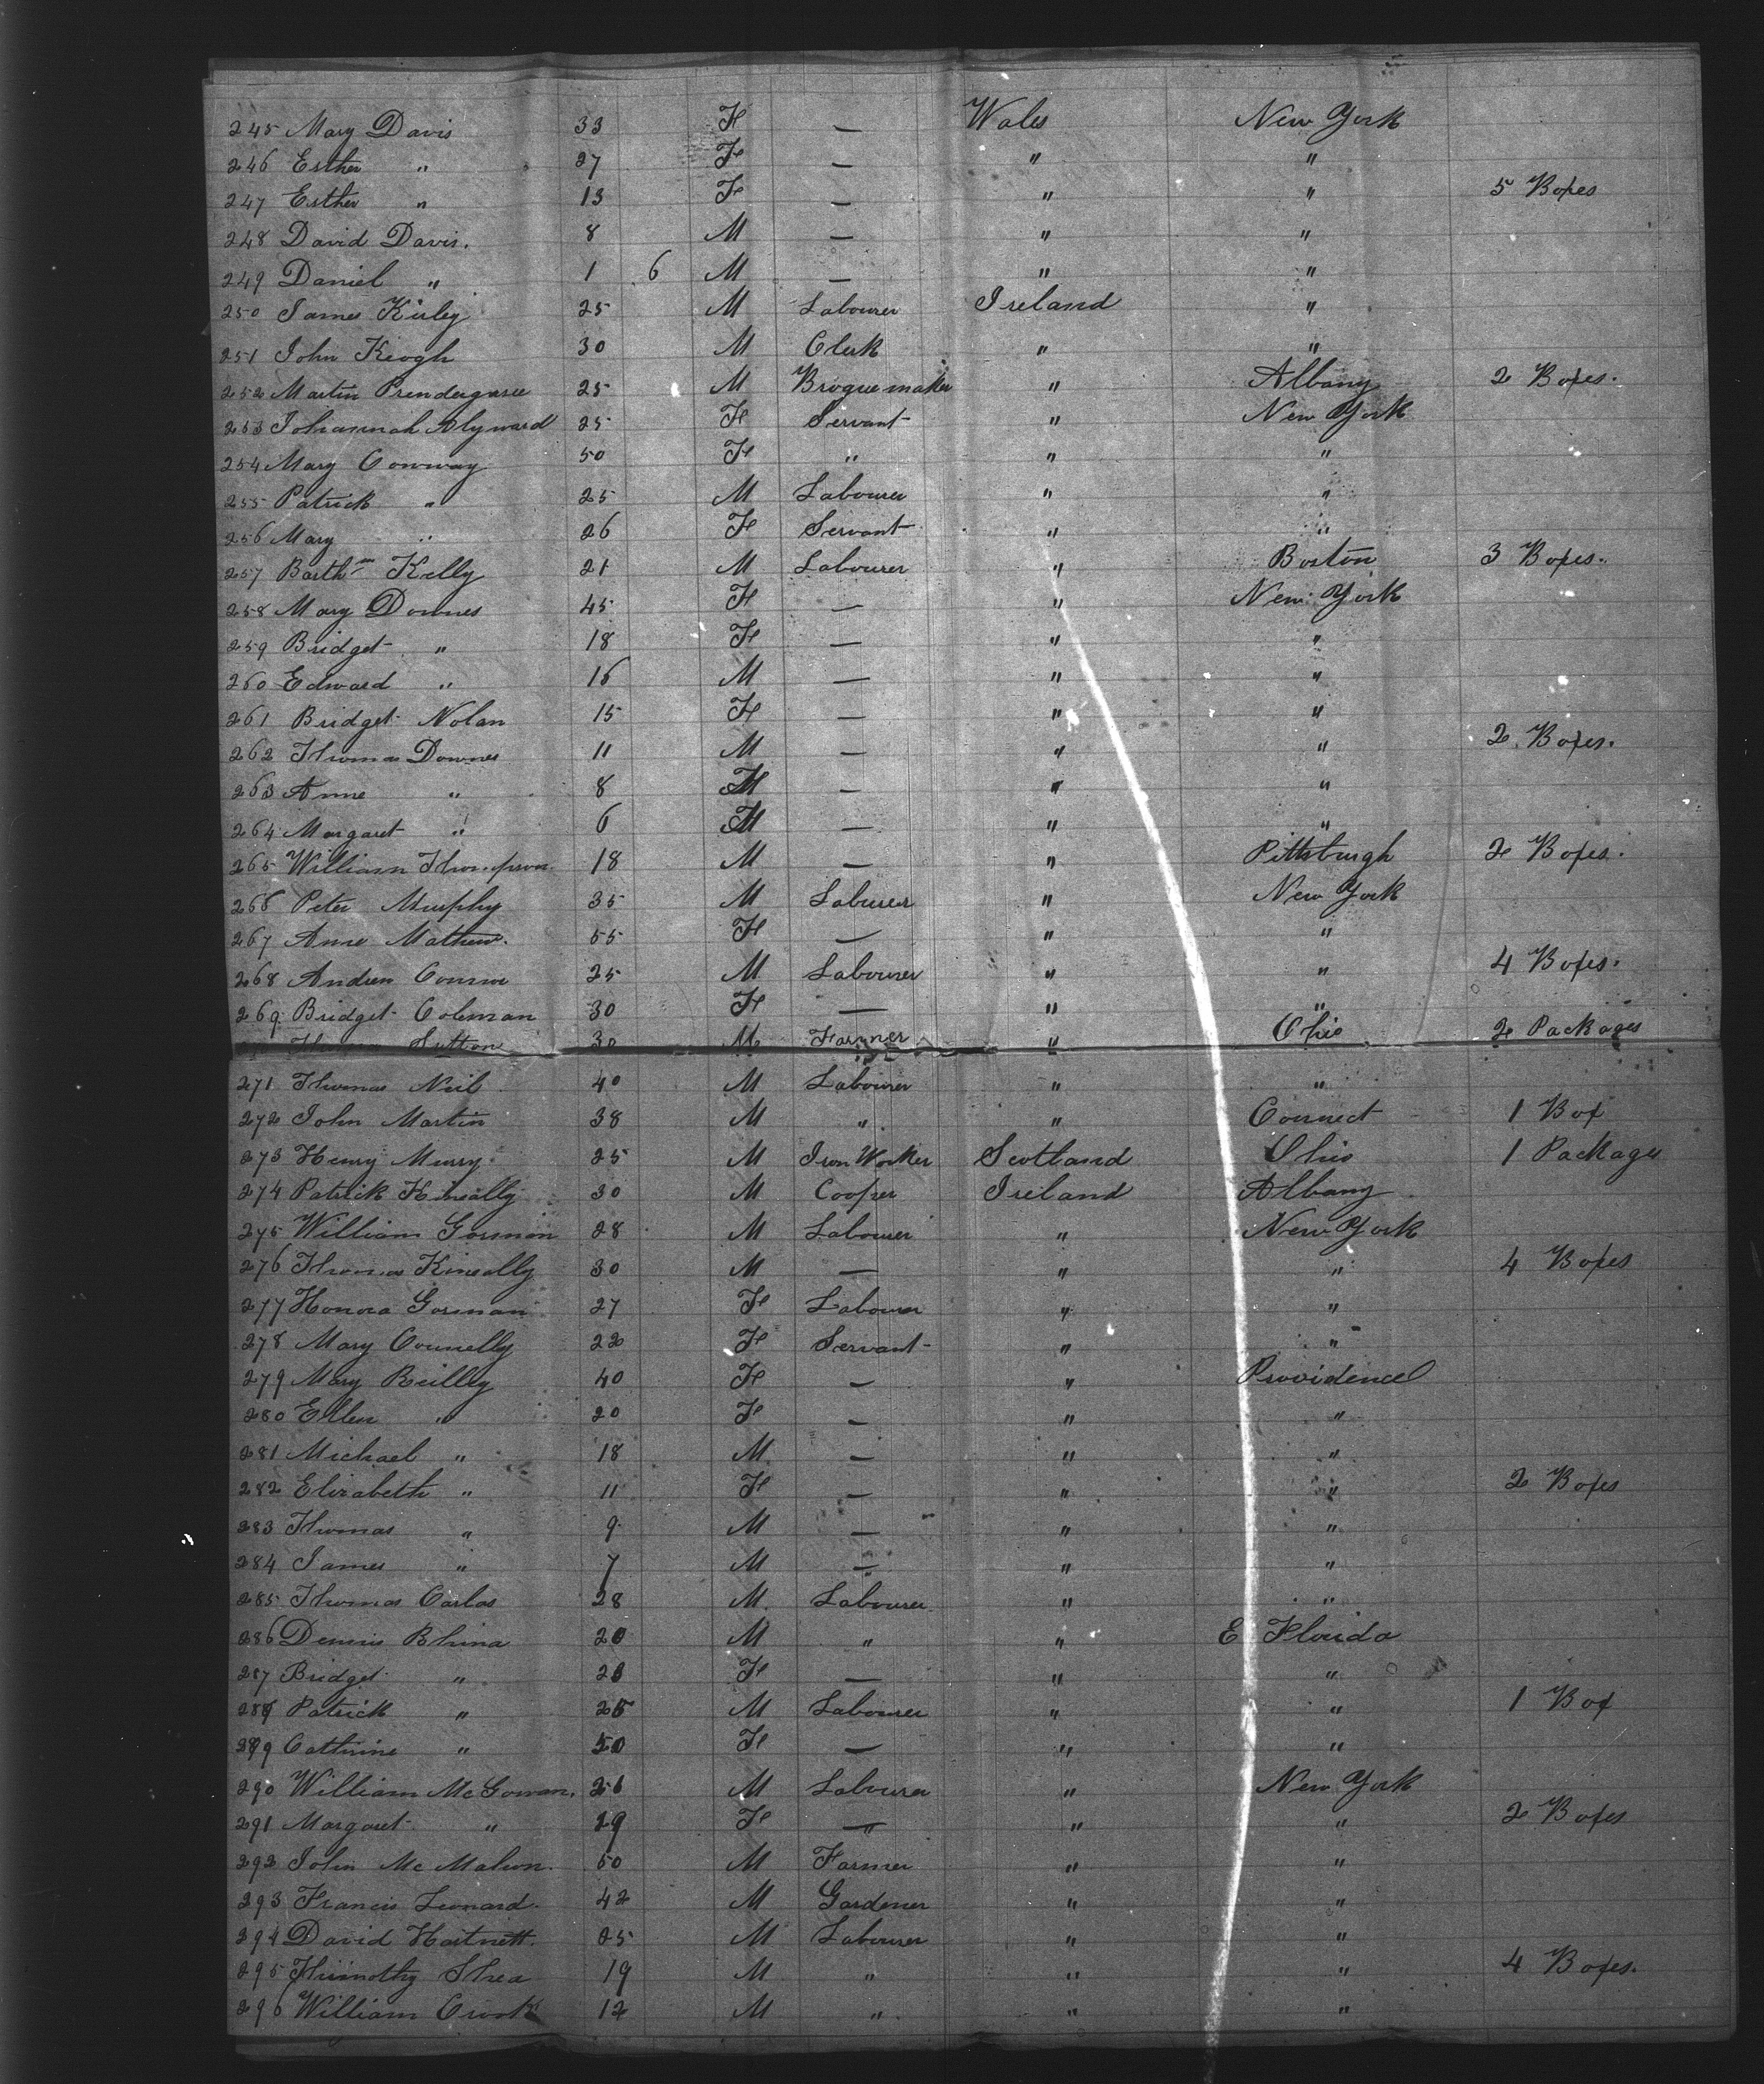 245 Mary Davis 33 F — Wales New York
246 Esther " 27 F — " "
247 Esther " 13 F — " " 5 Boxes
248 David Davis. 8 M — " "
249 Daniel " 1 6 M — " "
250 James Kirley 25 M Labourer Ireland "
251 John Keogh 30 M Clerk " "
252 Martin 25 M Brogue maker " Albany 2 Boxes.
253 Johannah Alyward 25 F Servant " New York
254 Mary Conway 50 F " " "
255 Patrick " 25 M Labourer " "
256 Mary " 26 F Servant " "
257 Barthm Kelly 21 M Labourer " Boston 3 Boxes.
258 Mary Downes 45 F — " New York
259 Bridget " 18 F — " "
260 Edward " 16 M — " "
261 Bridget Nolan 15 F — " "
262 Thomas Downes 11 M — " " 2 Boxes.
263 Anne " 8 F — " "
264 Margaret " 6 F — " "
265 William Thompson 18 M — " Pittsburgh 2 Boxes.
266 Peter Murphy 35 M Labourer " New York
267 Anne Mathew. 55 F — " "
268 Andrew Connor 25 M Labourer " " 4 Boxes.
269 Bridget Coleman 30 F — " "
Thomas Sutton 30 M Farmer " Ohio 2 Packages
271 Thomas Neil 40 M Labourer " "
272 John Martin 38 M " " Connect 1 Box
273 Henry Murry 25 M Iron Worker Scotland Ohio 1 Package
274 Patrick Kineally 30 M Cooper Ireland Albany
275 William Gorman 28 M Labourer " New York
276 Thomas Kineally 30 M — " " 4 Boxes
277 Honora Gorman 27 F Labourer " "
278 Mary Connelly 22 F Servant " "
279 Mary Reilly 40 F — " Providence
280 Ellen " 20 F — " "
281 Michael " 18 M — " "
282 Elizabeth " 11 F — " " 2 Boxes
283 Thomas " 9 M — " "
284 James " 7 M — " "
285 Thomas Carlos 28 M Labourer " "
286 Dennis Rhina 20 M " " E Florida
287 Bridget " F — " "
288 Patrick " M Labourer " " 1 Box
289 Cathrine " 50 F — " "
290 William McGowan. 26 M Labourer " New York
291 Margaret " 29 F — " " 2 Boxes
292 John McMahon. 50 M Farmer " "
293 Francis Leonard. 42 M Gardener " "
294 David Hartnett. 25 M Labourer " "
295 Thimothy Shea 19 M " " " 4 Boxes.
296 William 12 M " " "